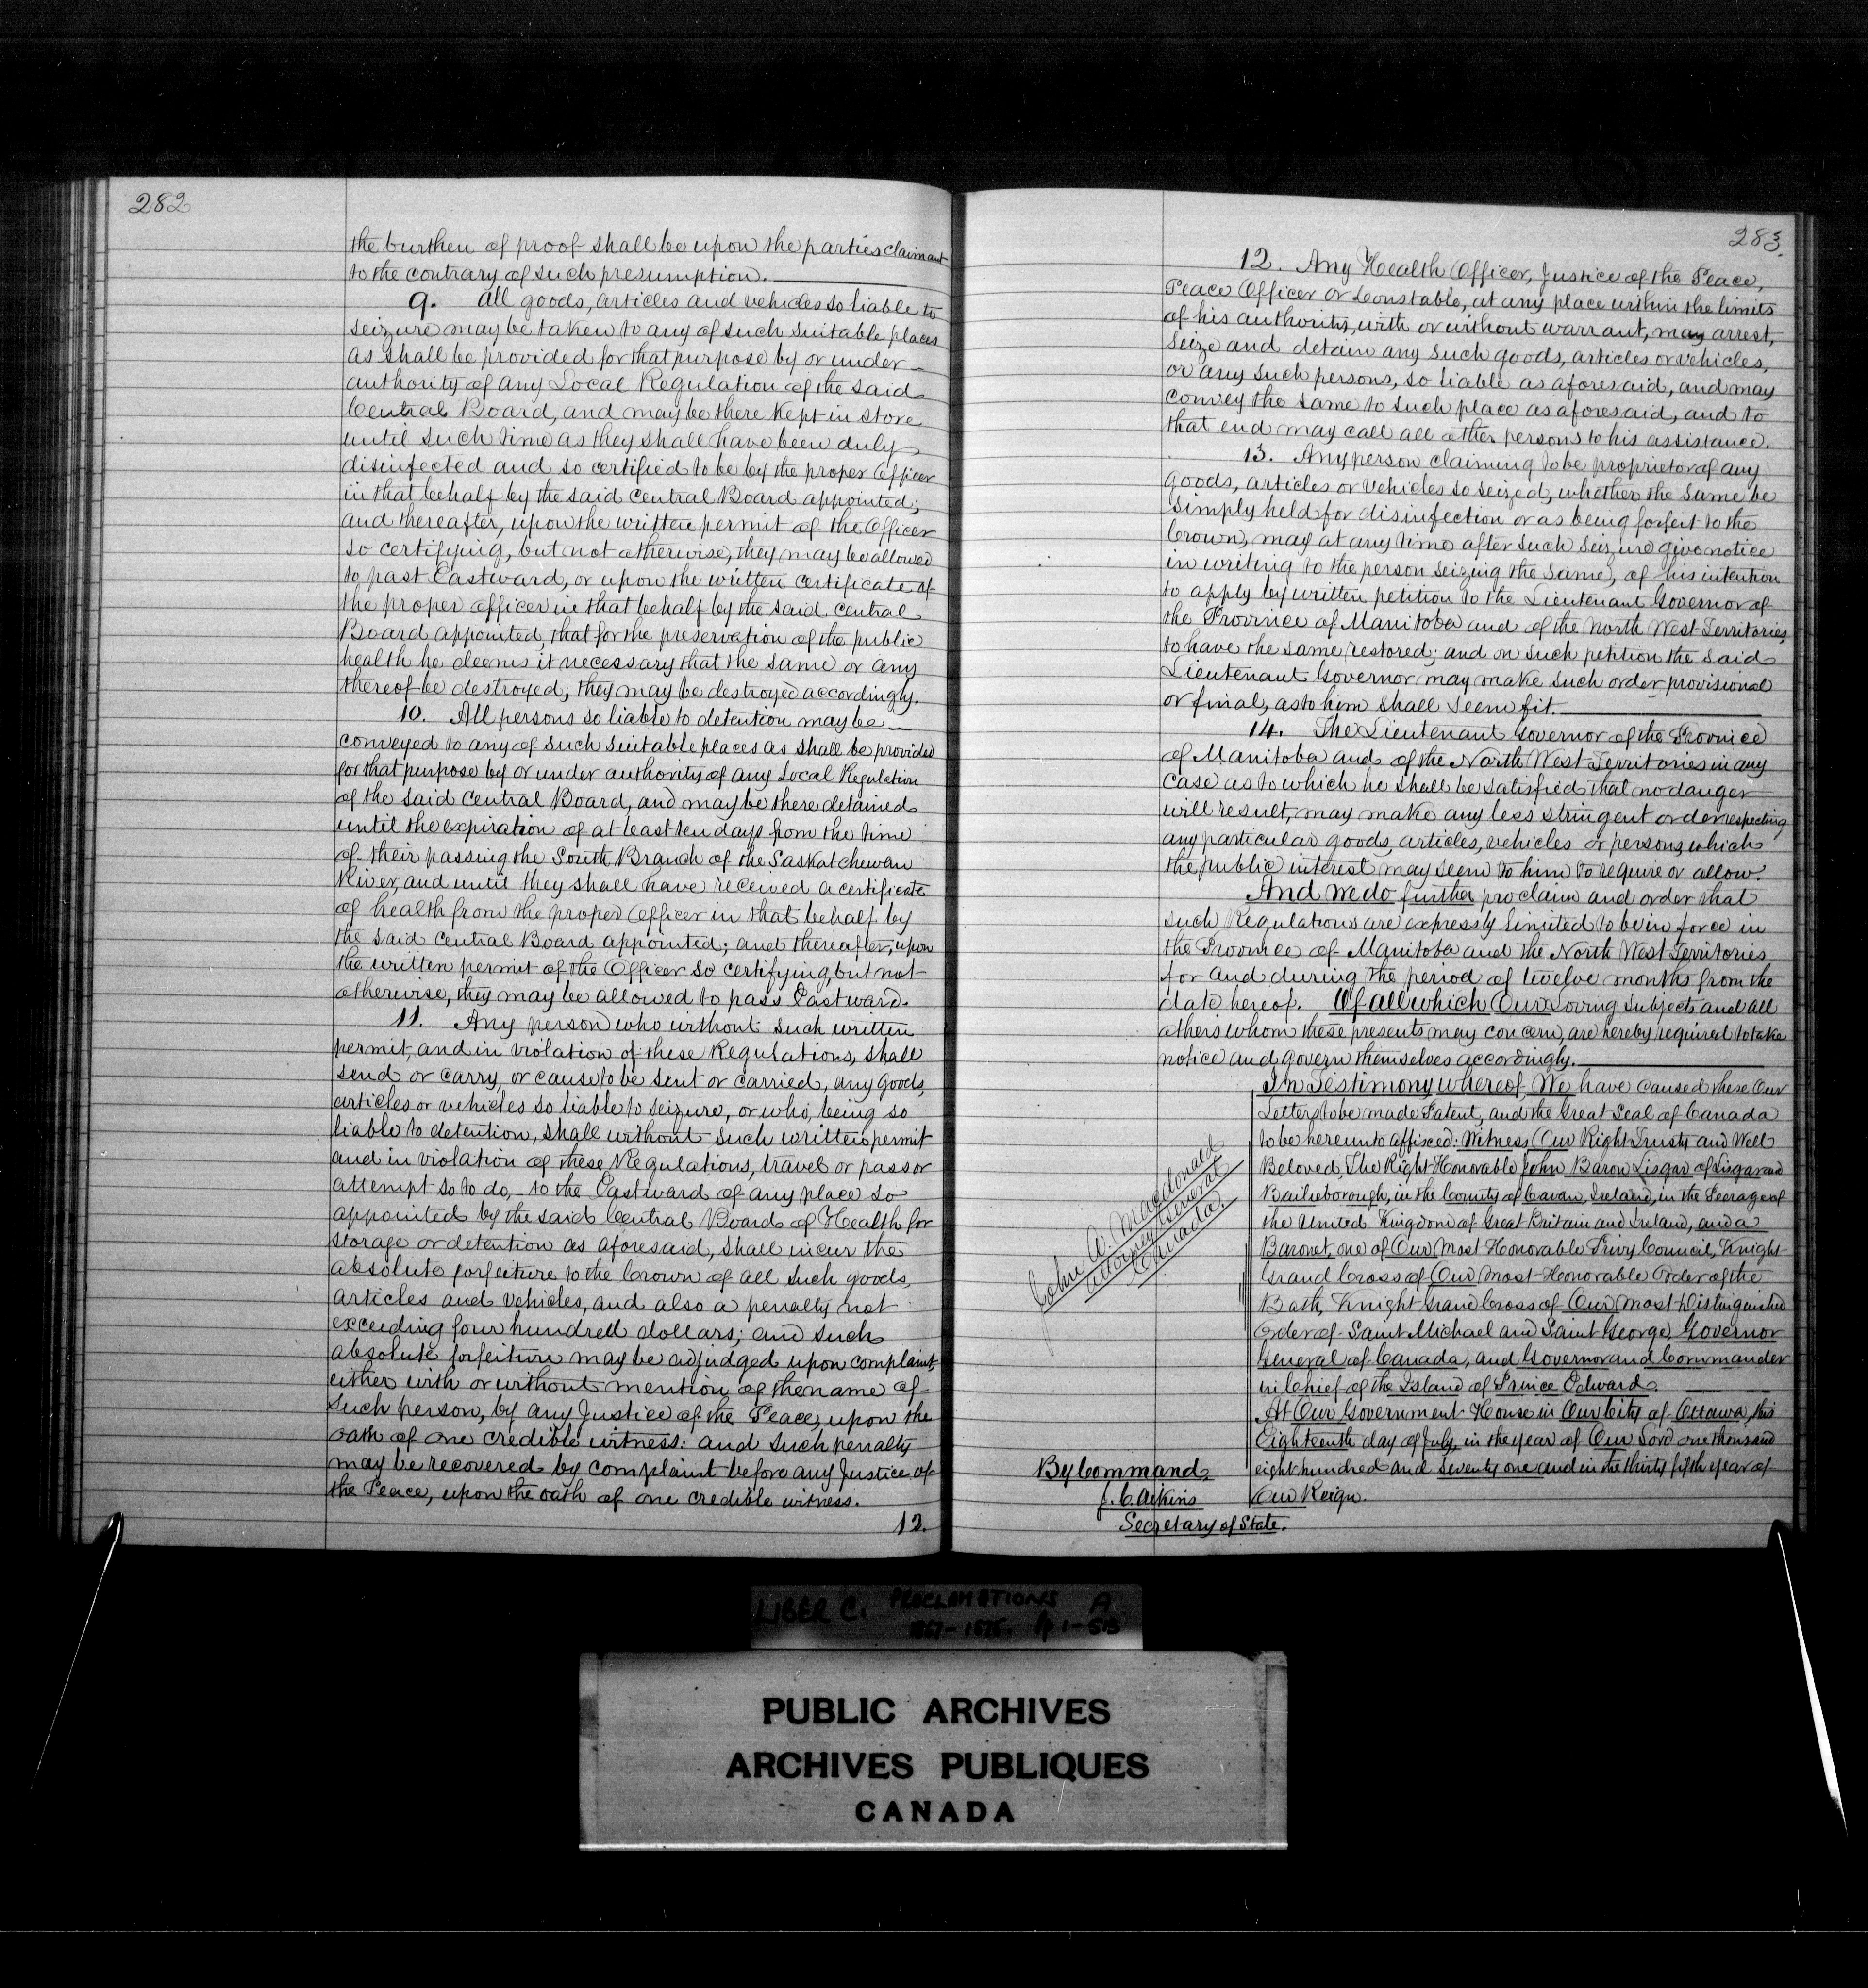 282
the burthen of proof shall be upon the parties claimant
to the contrary of such presumption.
9. All goods, articles and vehicles so liable to
seizure may be taken to any of such suitable places
as shall be provided for that purpose by or under
authority of any Local Regulation of the said
Central Board, and may be there kept in store
until such time as they shall have been duly
disinfected and so certified to be by the proper Officer
in that behalf by the said Central Board appointed;
and thereafter, upon the written permit of the Officer
so certifying, but not otherwise, they may be allowed
to past Eastward, or upon the written certificate of
the proper officer in that behalf by the said Central
Board appointed, that for the preservation of the public
health he deems it necessary that the same or any
thereof be destroyed; they may be destroyed accordingly.
10. All persons so liable to detention may be
conveyed to any of such suitable places as shall be provided
for that purpose by or under authority of any Local Regulation
of the said Central Board, and may be there detained
until the expiration of at least ten days from the time
of their passing the South Branch of the Saskatchewan
River, and until they shall have received a certificate
of health from the proper Officer in that behalf by
the said Central Board appointed; and thereafter, upon
the written permit of the Officer so certifying, but not
otherwise, they may be allowed to pass Eastward.
11. Any person who without such written
permit, and in violation of these Regulations, shall
send or carry, or cause to be sent or carried, any goods,
articles or vehicles so liable to seizure, or who, being so
liable to detention, shall without such written permit
and in violation of these Regulations, travel or pass or
attempt so to do, to the Eastward of any place so
appointed by the said Central Board of Health for
storage or detention as aforesaid, shall incur the
absolute forfeiture to the Crown of all such goods,
articles and vehicles, and also a penalty not
exceeding four hundred dollars; and such
absolute forfeiture may be adjudged upon complaint
either with or without mention of the name of
such person, by any Justice of the Peace, upon the
oath of one credible witness: and such penalty
may be recovered by complaint before any Justice of
the Peace, upon the oath of one credible witness.
12.
283.
12. Any Health Officer, Justice of the Peace,
Peace Officer or Constable, at any place within the limits
of his authority, with or without warrant, may arrest,
seize and detain any such goods, articles or vehicles,
or any such persons, so liable as aforesaid, and may
convey the same to such place as aforesaid, and to
that end may call all other persons to his assistance.
13. Any person claiming to be proprietor of any
goods, articles or vehicles so seized, whether the same be
simply held for disinfection or as being forfeit to the
Crown, may at any time after such seizure give notice
in writing to the person seizing the same, of his intention
to apply by written petition to the Lieutenant Governor of
the Province of Manitoba and of the North West Territories,
to have the same restored; and on such petition the said
Lieutenant Governor may make such order provisional
or final, as to him shall seem fit.
14. The Lieutenant Governor of the Province
of Manitoba and of the North West Territories in any
case as to which he shall be satisfied that no danger
will result, may make any less stringent order respecting
any particular goods, articles, vehicles or persons, which
the public interest may seem to him to require or allow.
And we do further proclaim and order that
such Regulations are expressly limited to be in force in
the Province of Manitoba and the North West Territories
for and during the period of twelve months from the
date hereof. Of all which Our Loving Subjects and all
others whom these presents may concern, are hereby required to take
notice and govern themselves accordingly.
In Testimony whereof, We have caused these Our
Letters to be made Patent, and the Great Seal of Canada
to be hereunto affixed: Witness, Our Right Trusty and Well
Beloved, The Right Honorable John Baron Lisgar of Lisgar and
Bailieborough, in the County of Cavan, Ireland, in the Peerage of
the United Kingdom of Great Britain and Ireland, and a
Baronet, one of Our Most Honorable Privy Council, Knight
Grand Cross of Our Most Honorable Order of the
Bath, Knight Grand Cross of Our Most Distinguished
Order of Saint Michael and Saint George, Governor
General of Canada, and Governor and Commander
in Chief of the Island of Prince Edward.
At Our Government House in Our City of Ottawa, this
Eighteenth day of July, in the year of Our Lord one thousand
eight hundred and seventy one and in the thirty fifth year of
Our Reign.
John A. Macdonald
Attorney General
Canada.
By Command
J. C. Aikins
Secretary of State.
LIBER C. PROCLAMATIONS A
1867-1875. Pp 1-513
PUBLIC ARCHIVES
ARCHIVES PUBLIQUES
CANADA